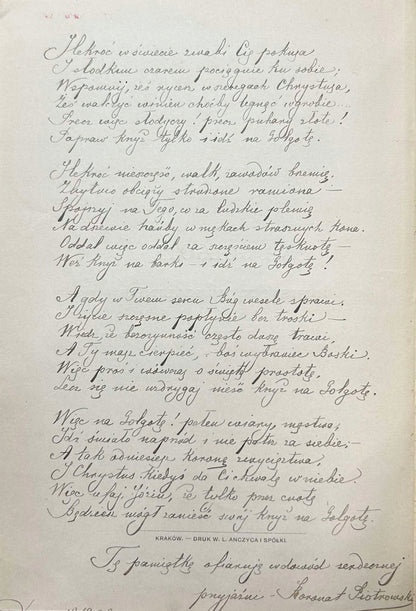 Ilekroć w świecie zwabi Cię pokusa
I słodkim czarem pociągnie ku sobie;
Wspomnij, żeś rycerz w szeregach Chrystusa,
Żeś walczyć winien choćby legnąc w grobie...
Precz więc słodyczy! precz puhary złote!
Popraw krzyż tylko i idź na Golgotę.
Ilekroć niemoc, walk, zawodów brzemię
Zbytnio obciąży strudzone ramiona –
Spojrzyj na Tego, co za ludzkie plemię
Na drzewie hańby w mękach strasznych kona.
Oddal więc oddal za szczęściem tęsknotę –
Weź krzyż na barki – i idź na Golgotę!
A gdy w Twem sercu Bóg wesele sprawi,
I życie szczęsne popłynie bez troski –
Wiedz, że bezczynność często duszę trawi,
A Ty masz cierpieć, – boś wybraniec Boski.
Więc proś i wówczas o świętą prostotę,
Lecz się nie wzdrygaj nieść krzyż na Golgotę.
Więc na Golgotę! pełen wiary, męstwa;
Idź śmiało naprzód i nie patrz za siebie; –
A tak odniesiesz koronę zwycięztwa,
I Chrystus kiedyś da Ci chwałę w niebie.
Więc ufaj, że tylko przez cnotę
Będziesz mógł zanieść swój krzyż na Golgotę.
KRAKÓW. — DRUK W. L. ANCZYCA I SPÓŁKI.
Tę pamiątkę ofiaruję w dowód serdecznej
przyjaźni – Honorat Piotrowski